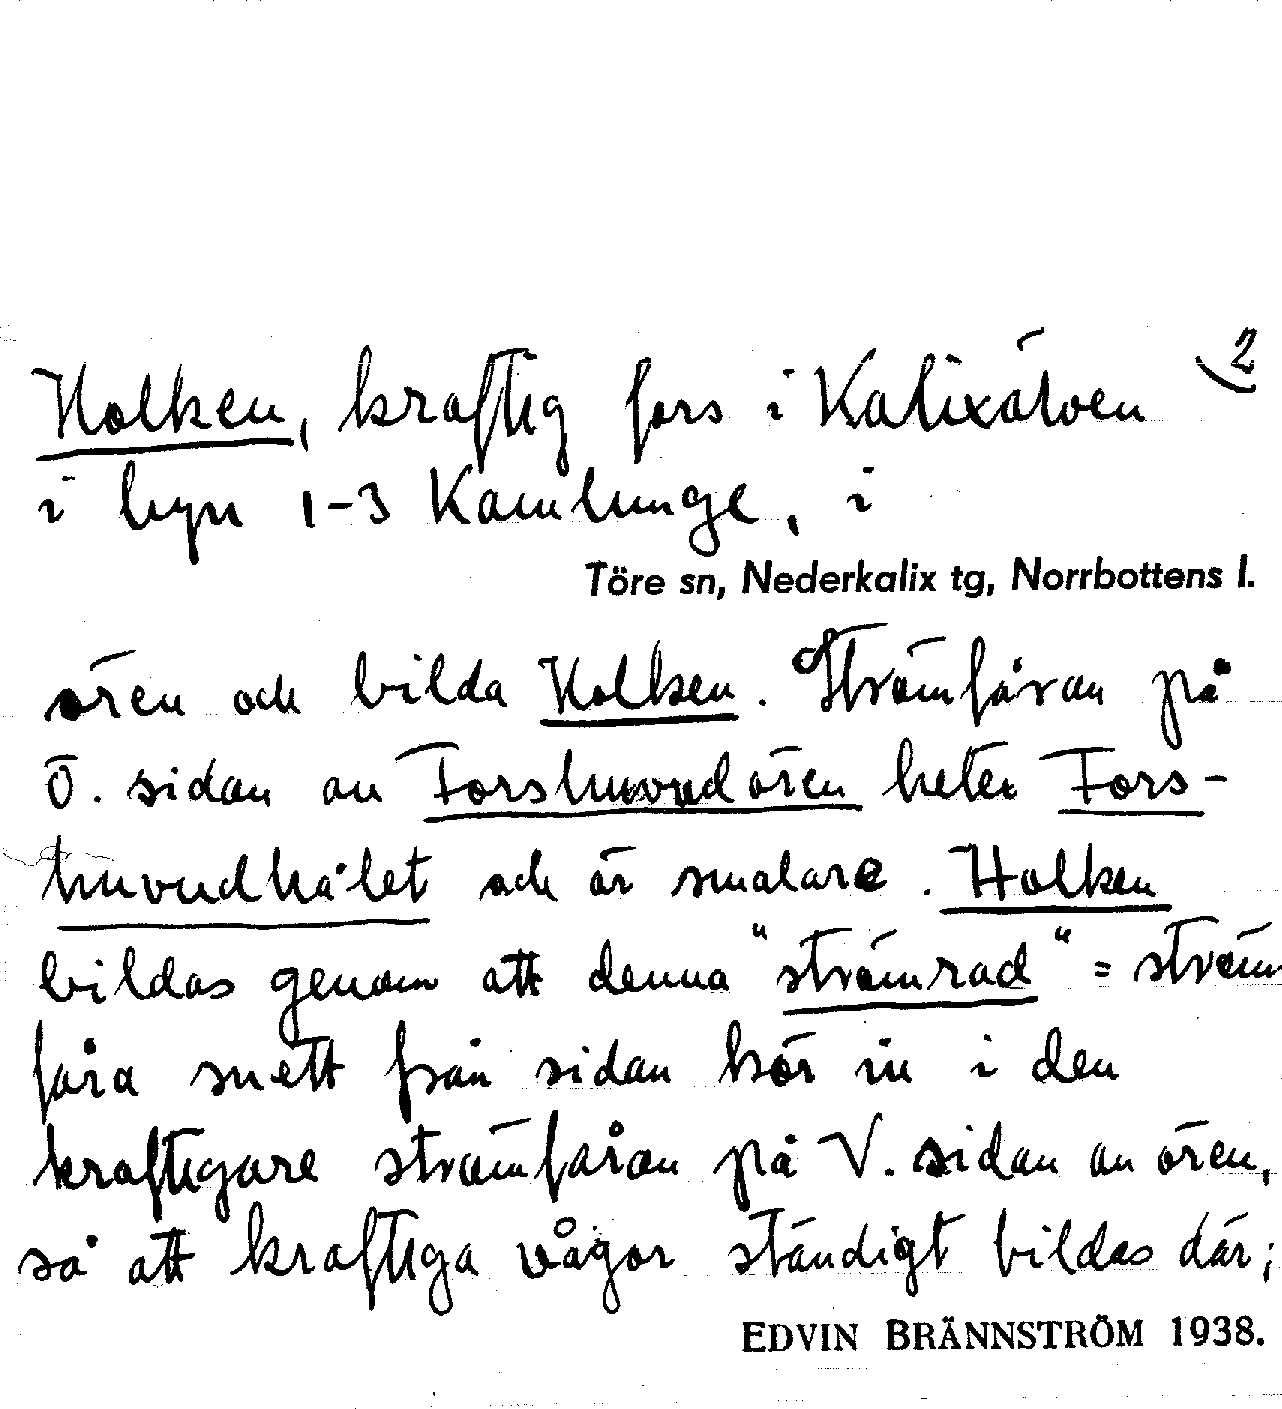 2
Holken, kraftig fors i Kalixälven
i byn 1-3 Kamlunge, i
Töre sn, Nederkalix tg, Norrbottens l.
ören och bilda Holken. Strömfåran på
Ö. sidan av Forshuvudören heter Fors-
huvudhålet och är smalare. Holken
bildas genom att denna "strömrad" = ström
fåra snett från sidan kör in i den
kraftigare strömfåran på V. sidan av ören,
så att kraftiga vågor ständigt bildas där;
EDVIN BRÄNNSTRÖM 1938.